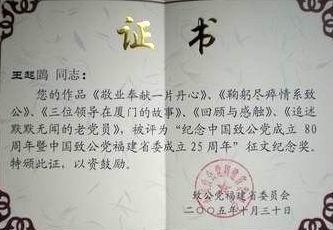 证书
王起鹍 同志：
您的作品《敬业奉献一片丹心》、《鞠躬尽瘁情系致
公》、《三位领导在厦门的故事》、《回顾与感触》、《追述
默默无闻的老党员》，被评为“纪念中国致公党成立 80
周年暨中国致公党福建省委成立 25 周年”征文纪念奖。
特颁此证，以资鼓励。
致公党福建省委员会
二〇〇五年十月三十日